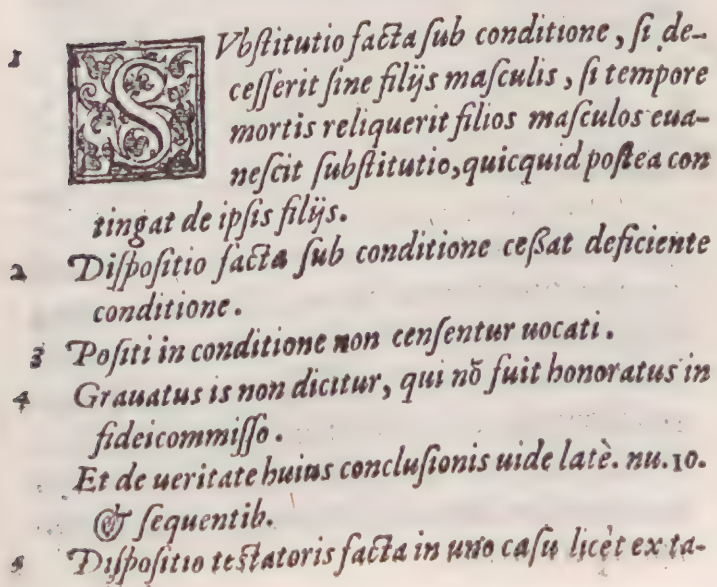 1 SVbſtitutio facta ſub conditione, ſi de-
ceſſerit ſine filijs maſculis, ſi tempore
mortis reliquerit filios maſculos eua-
neſcit ſubſtitutio, quicquid poſtea con
tingat de ipſis filijs.
2 Diſpoſitio facta ſub conditione ceſsat deficiente
conditione.
3 Poſiti in conditione non cenſentur uocati.
4 Grauatus is non dicitur, qui nõ fuit honoratus in
fideicommiſſo.
Et de ueritate huius concluſionis uide latè. nu. 10.
& ſequentib.
5 Diſpoſitio teſtatoris facta in uno caſu licèt ex ta-